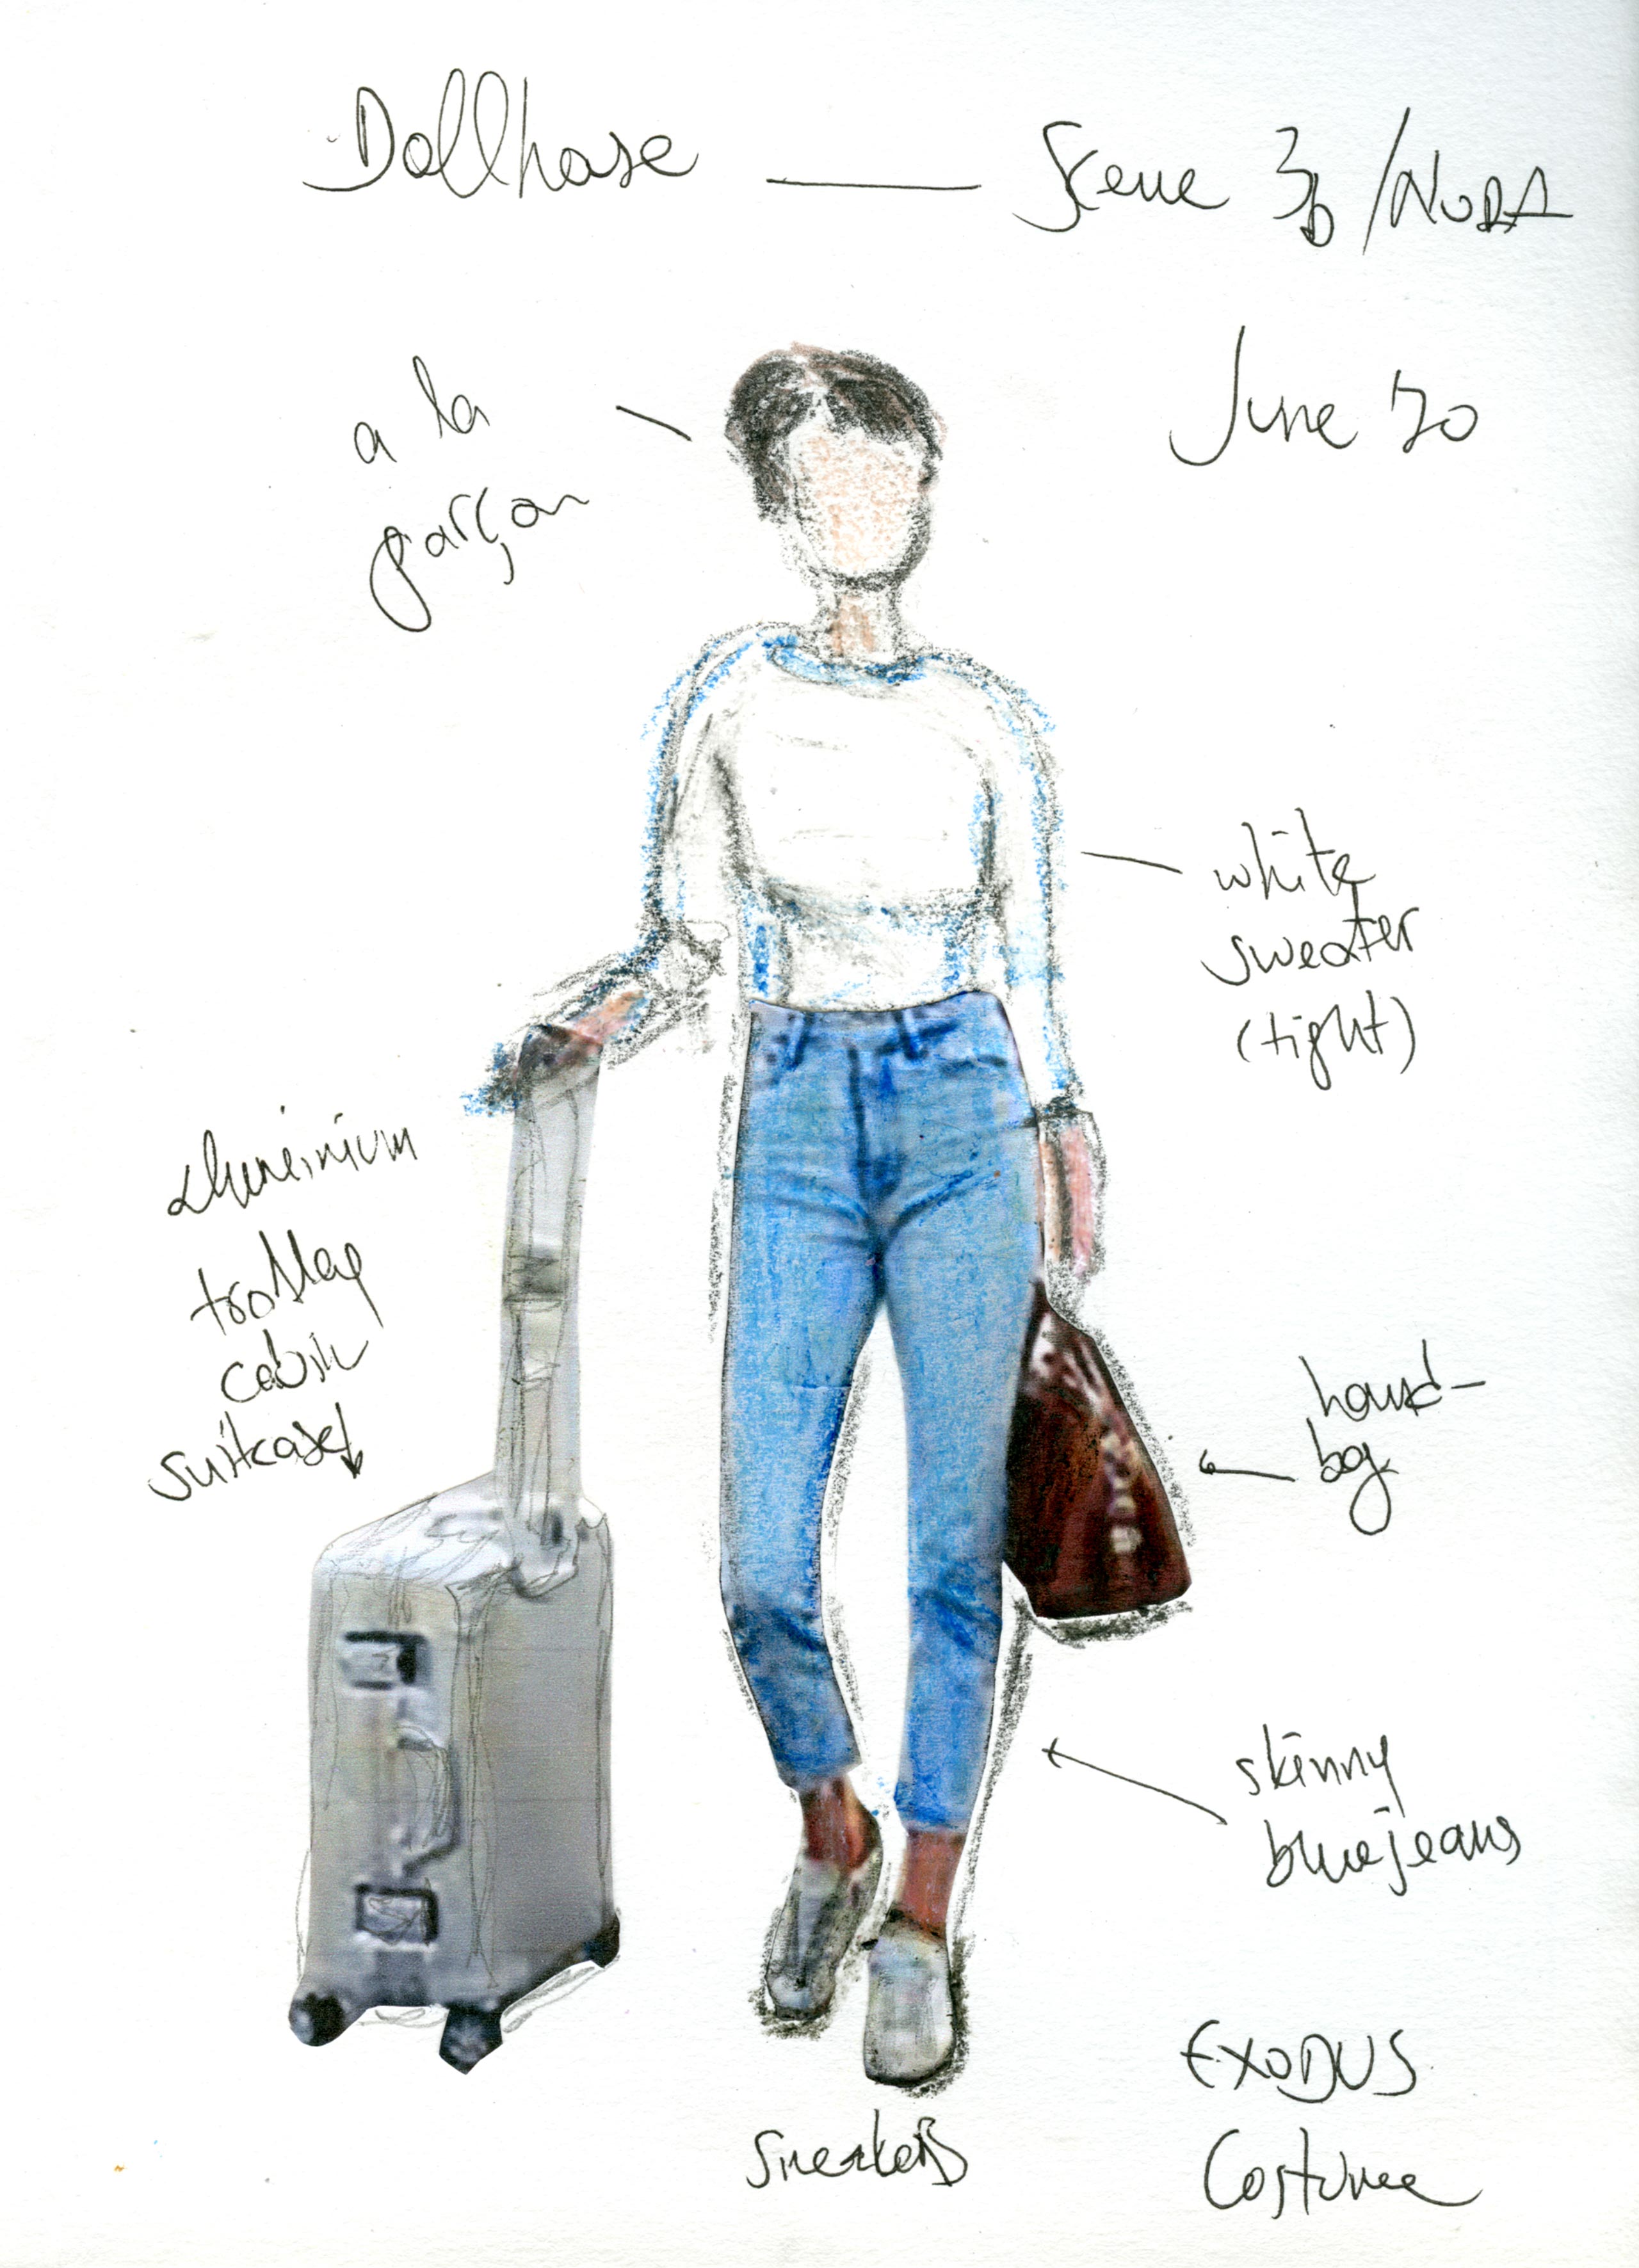 Dollhase — Scene 3b /NORA
June '20
a la
garçon
white
sweater
(tight)
aluminium
trolley
cabin
suitcase
hand-
bag
skinny
bluejeans
EXODUS
Costume
sneakers